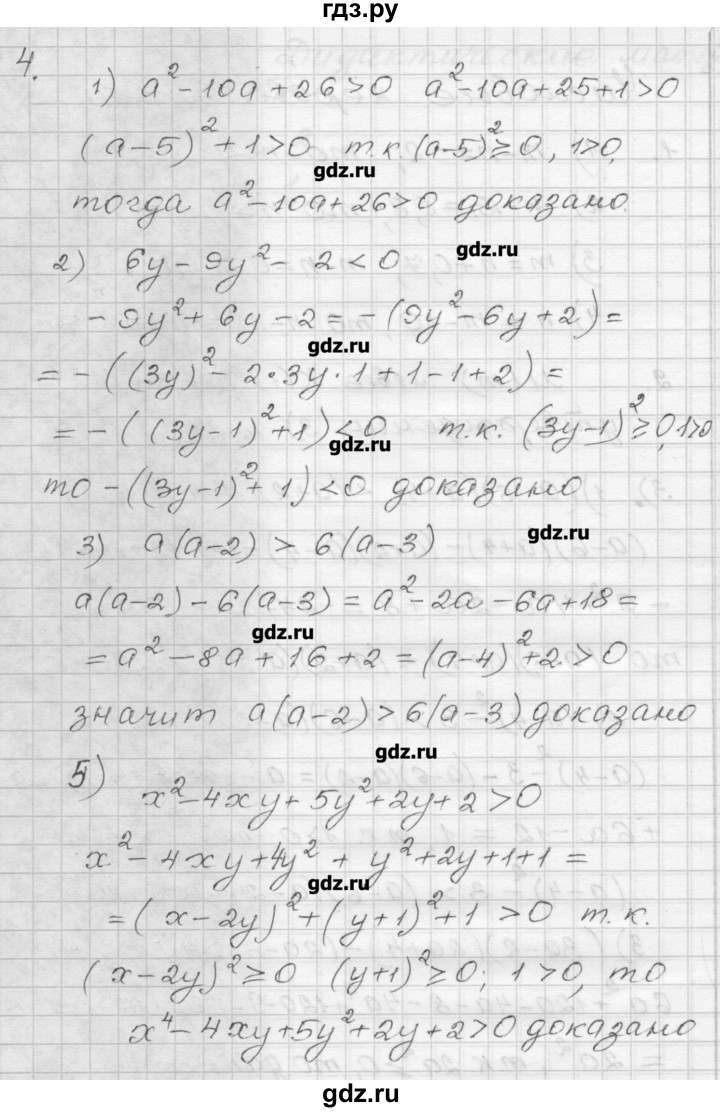 гдз.ру
4.
1) a² - 10a + 26 > 0   a² - 10a + 25 + 1 > 0
(a - 5)² + 1 > 0   т.к. (a-5)² ≥ 0, 1>0,
gdz.ru
тогда a² - 10a + 26 > 0 доказано.
gdz.ru
2) 6y - 9y² - 2 < 0
- 9y² + 6y - 2 = - (9y² - 6y + 2) =
gdz.ru
= - ((3y)² - 2 · 3y · 1 + 1 - 1 + 2) =
= - ((3y-1)² + 1) < 0   т.к. (3y-1)² ≥ 0, 1>0
gdz.ru
то - ((3y-1)² + 1) < 0 доказано
gdz.ru
3) a(a-2) > 6(a-3)
a(a-2) - 6(a-3) = a² - 2a - 6a + 18 =
gdz.ru
= a² - 8a + 16 + 2 = (a-4)² + 2 > 0
значит a(a-2) > 6(a-3) доказано
gdz.ru
5)
x² - 4xy + 5y² + 2y + 2 > 0
x² - 4xy + 4y² + y² + 2y + 1 + 1 =
gdz.ru
= (x - 2y)² + (y+1)² + 1 > 0 т.к.
(x - 2y)² ≥ 0   (y+1)² ≥ 0; 1 > 0, то
x⁴ - 4xy + 5y² + 2y + 2 > 0 доказано
gdz.ru